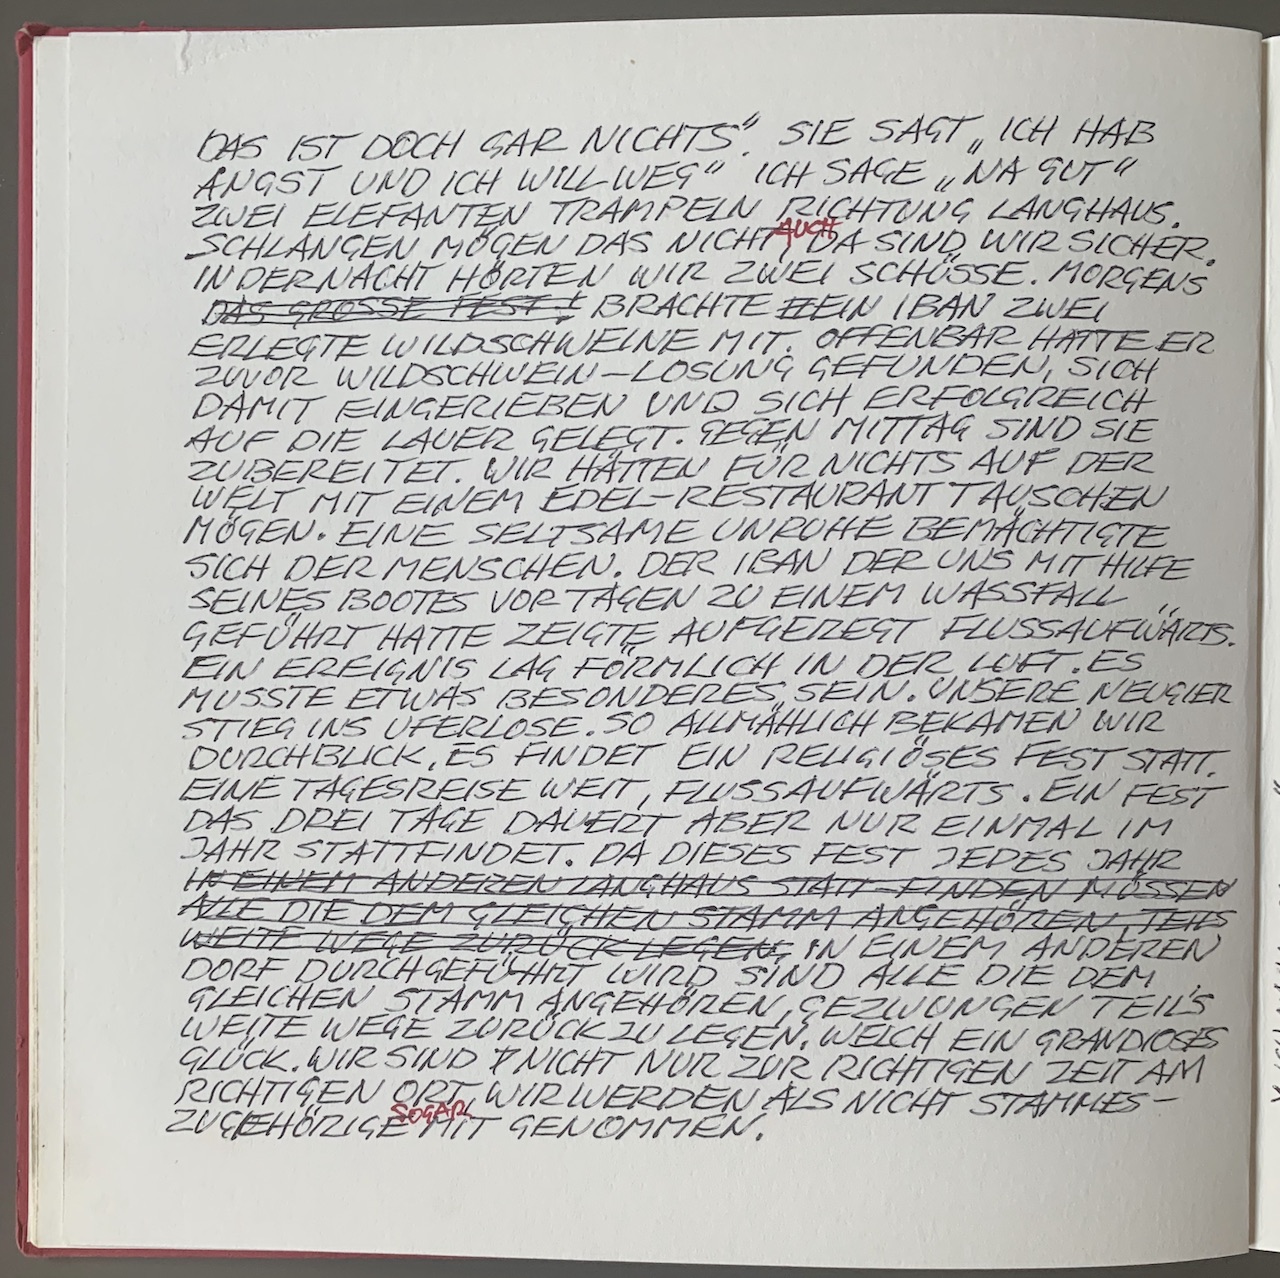 DAS IST DOCH GAR NICHTS". SIE SAGT „ICH HAB
ANGST UND ICH WILL WEG" ICH SAGE „NA GUT"
ZWEI ELEFANTEN TRAMPELN RICHTUNG LANGHAUS.
AUCH
SCHLANGEN MÖGEN DAS NICHT, DA SIND WIR SICHER.
IN DER NACHT HÖRTEN WIR ZWEI SCHÜSSE. MORGENS
DAS GROSSE FEST! BRACHTE EIN IBAN ZWEI
ERLEGTE WILDSCHWEINE MIT. OFFENBAR HATTE ER
ZUVOR WILDSCHWEIN-LOSUNG GEFUNDEN, SICH
DAMIT EINGERIEBEN UND SICH ERFOLGREICH
AUF DIE LAUER GELEGT. GEGEN MITTAG SIND SIE
ZUBEREITET. WIR HÄTTEN FÜR NICHTS AUF DER
WELT MIT EINEM EDEL-RESTAURANT TAUSCHEN
MÖGEN. EINE SELTSAME UNRUHE BEMÄCHTIGTE
SICH DER MENSCHEN. DER IBAN DER UNS MIT HILFE
SEINES BOOTES VOR TAGEN ZU EINEM WASSFALL
GEFÜHRT HATTE ZEIGTE AUFGEREGT FLUSSAUFWÄRTS.
EIN EREIGNIS LAG FÖRMLICH IN DER LUFT. ES
MUSSTE ETWAS BESONDERES SEIN. UNSERE NEUGIER
STIEG INS UFERLOSE. SO ALLMÄHLICH BEKAMEN WIR
DURCHBLICK. ES FINDET EIN RELIGIÖSES FEST STATT.
EINE TAGESREISE WEIT, FLUSSAUFWÄRTS. EIN FEST
DAS DREI TAGE DAUERT ABER NUR EINMAL IM
JAHR STATTFINDET. DA DIESES FEST JEDES JAHR
IN EINEM ANDEREN LANGHAUS STATT FINDEN MÜSSEN
ALLE DIE DEM GLEICHEN STAMM ANGEHÖREN,
WEITE WEGE ZURÜCK LEGEN. IN EINEM ANDEREN
DORF DURCHGEFÜHRT WIRD, SIND ALLE DIE DEM
GLEICHEN STAMM ANGEHÖREN, GEZWUNGEN TEILS
WEITE WEGE ZURÜCK ZU LEGEN. WELCH EIN GRANDIOSES
GLÜCK. WIR SIND NICHT NUR ZUR RICHTIGEN ZEIT AM
RICHTIGEN ORT, WIR WERDEN ALS NICHT STAMMES-
SOGAR
ZUGEHÖRIGE MIT GENOMMEN.